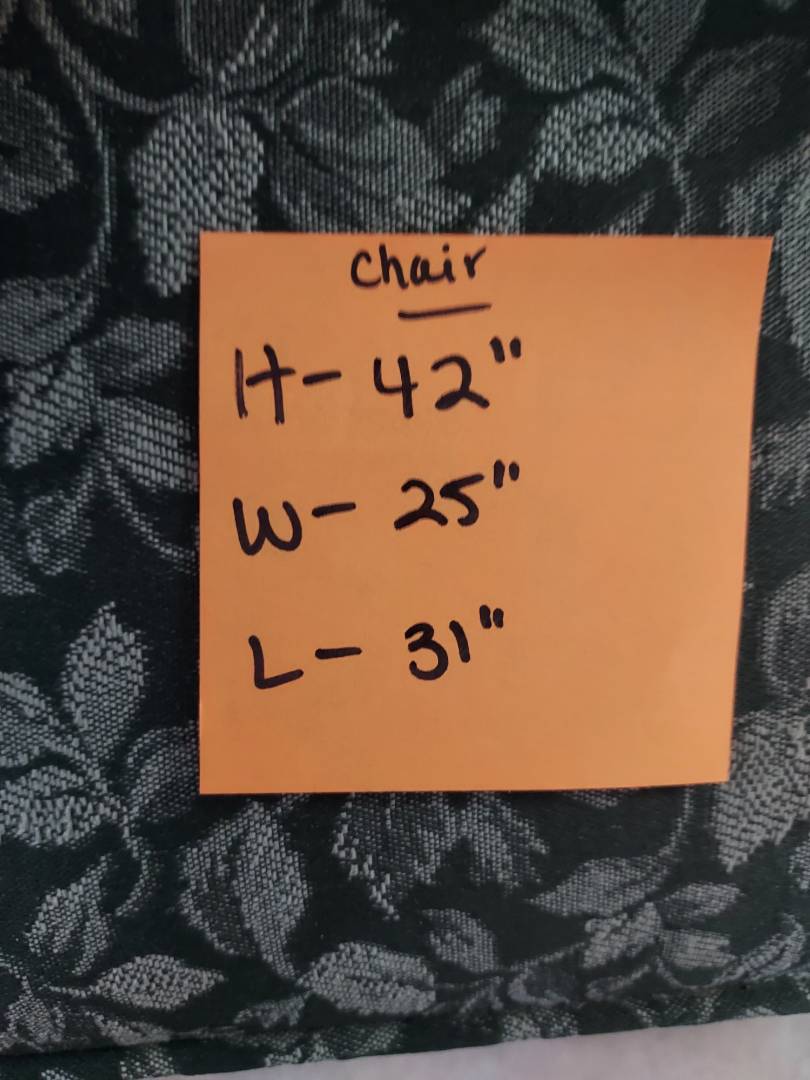 chair
H- 42"
W- 25"
L- 31"